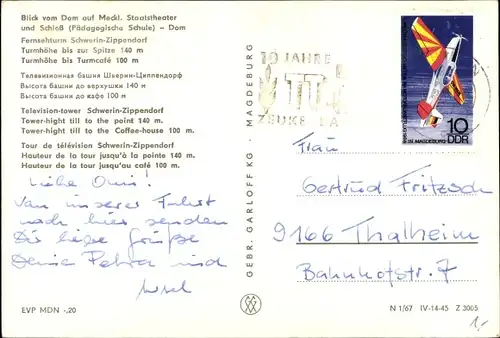 Blick vom Dom auf Meckl. Staatstheater
und Schloß (Pädagogische Schule) – Dom
Fernsehturm Schwerin-Zippendorf
Turmhöhe bis zur Spitze 140 m
Turmhöhe bis Turmcafé 100 m
Телевизионная башня Шверин-Циппендорф
Высота башни до верхушки 140 м
Высота башни до кафе 100 м
Television-tower Schwerin-Zippendorf
Tower-hight till to the point 140 m.
Tower-hight till to the Coffee-house 100 m.
Tour de télévision Schwerin-Zippendorf
Hauteur de la tour jusqu'à la pointe 140 m.
Hauteur de la tour jusqu'au café 100 m.
Liebe Omi!
Von unserer Fahrt
noch hier senden
Dir liebe Grüße
Deine Petra und
EVP MDN -,20
GEBR. GARLOFF KG · MAGDEBURG
10 JAHRE
10
DDR
IN MAGDEBURG
Frau
Gertrud Fritzsch
9166 Thalheim
Bahnhofstr. 7
N 1/67 IV-14-45 Z 3065
1,-